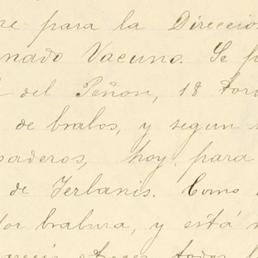 re para la Direccio
nado Vacuno. Se p
del Peñon, 18 Tor
de brabos, y segun
aderos, hoy para
de Terbanis. Como
or brabura, y está
todos